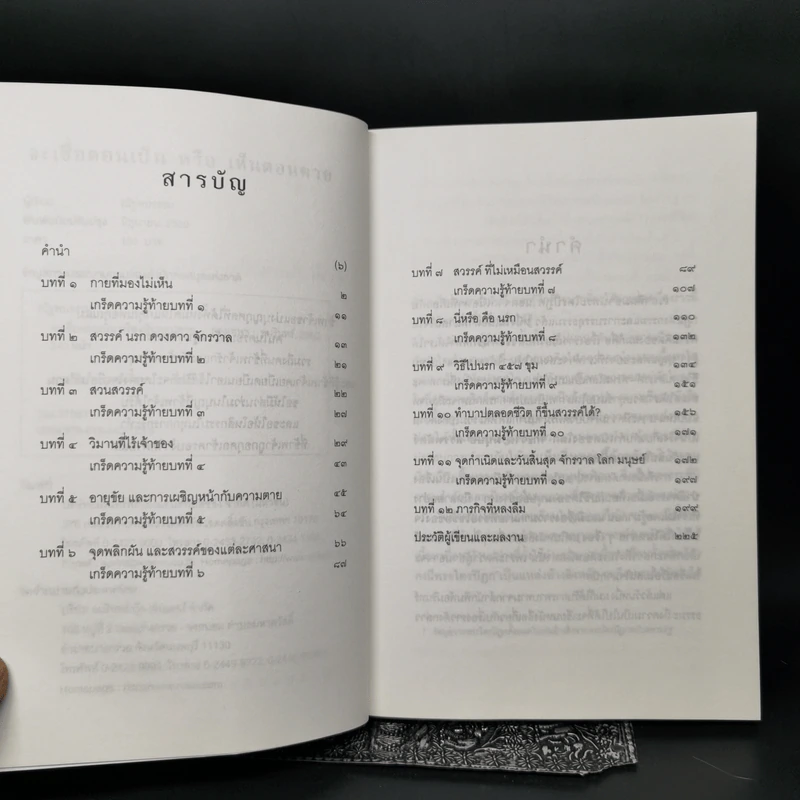 สารบัญ
คำนำ (๖)
บทที่ ๑ กายที่มองไม่เห็น ๒
เกร็ดความรู้ท้ายบทที่ ๑ ๑๑
บทที่ ๒ สวรรค์ นรก ดวงดาว จักรวาล ๑๓
เกร็ดความรู้ท้ายบทที่ ๒ ๒๑
บทที่ ๓ สวนสวรรค์ ๒๒
เกร็ดความรู้ท้ายบทที่ ๓ ๒๘
บทที่ ๔ วิมานที่ไร้เจ้าของ ๒๙
เกร็ดความรู้ท้ายบทที่ ๔ ๔๓
บทที่ ๕ อายุขัย และการเผชิญหน้ากับความตาย ๔๕
เกร็ดความรู้ท้ายบทที่ ๕ ๖๔
บทที่ ๖ จุดพลิกผัน และสวรรค์ของแต่ละศาสนา ๖๖
เกร็ดความรู้ท้ายบทที่ ๖ ๘๗
บทที่ ๗ สวรรค์ ที่ไม่เหมือนสวรรค์ ๘๙
เกร็ดความรู้ท้ายบทที่ ๗ ๑๐๗
บทที่ ๘ นี่หรือ คือ นรก ๑๑๐
เกร็ดความรู้ท้ายบทที่ ๘ ๑๓๒
บทที่ ๙ วิธีไปนรก ๔๕๗ ขุม ๑๓๔
เกร็ดความรู้ท้ายบทที่ ๙ ๑๕๑
บทที่ ๑๐ ทำบาปตลอดชีวิต ก็ขึ้นสวรรค์ได้? ๑๕๖
เกร็ดความรู้ท้ายบทที่ ๑๐ ๑๗๑
บทที่ ๑๑ จุดกำเนิดและวันสิ้นสุด จักรวาล โลก มนุษย์ ๑๗๒
เกร็ดความรู้ท้ายบทที่ ๑๑ ๑๙๗
บทที่ ๑๒ ภารกิจที่หลงลืม ๑๙๙
ประวัติผู้เขียนและผลงาน ๒๒๕